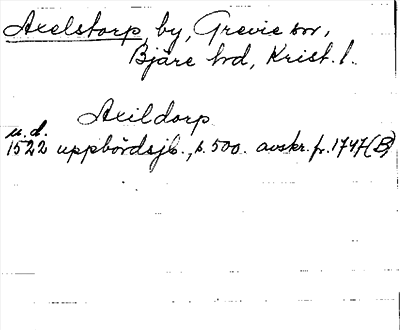 Axelstorp, by, Grevie sn,
Bjäre hd, Krist. l.
Axildorp
u.d.
1522 uppbördsjb., s. 500. avskr. fr. 1747 (B)